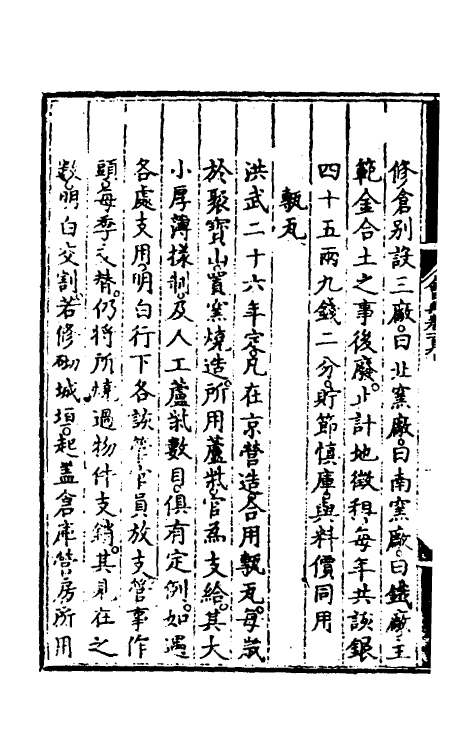 修倉別設三廠曰北窯廠曰南窯廠曰鐵廠主
範金合土之事後廢止計地徵租每年共該銀
四十五兩九錢二分貯節慎庫與料價同用
甎瓦
洪武二十六年定凡在京營造合用甎瓦每歲
於聚寶山置窯燒造所用蘆柴官爲支給其大
小厚薄樣制及人工蘆柴數目俱有定例如遇
各處支用明白行下各該管官員放支管事作
頭每季交替仍將所燒過物件支銷其見在之
數明白交割若修砌城垣起蓋倉庫營房所用